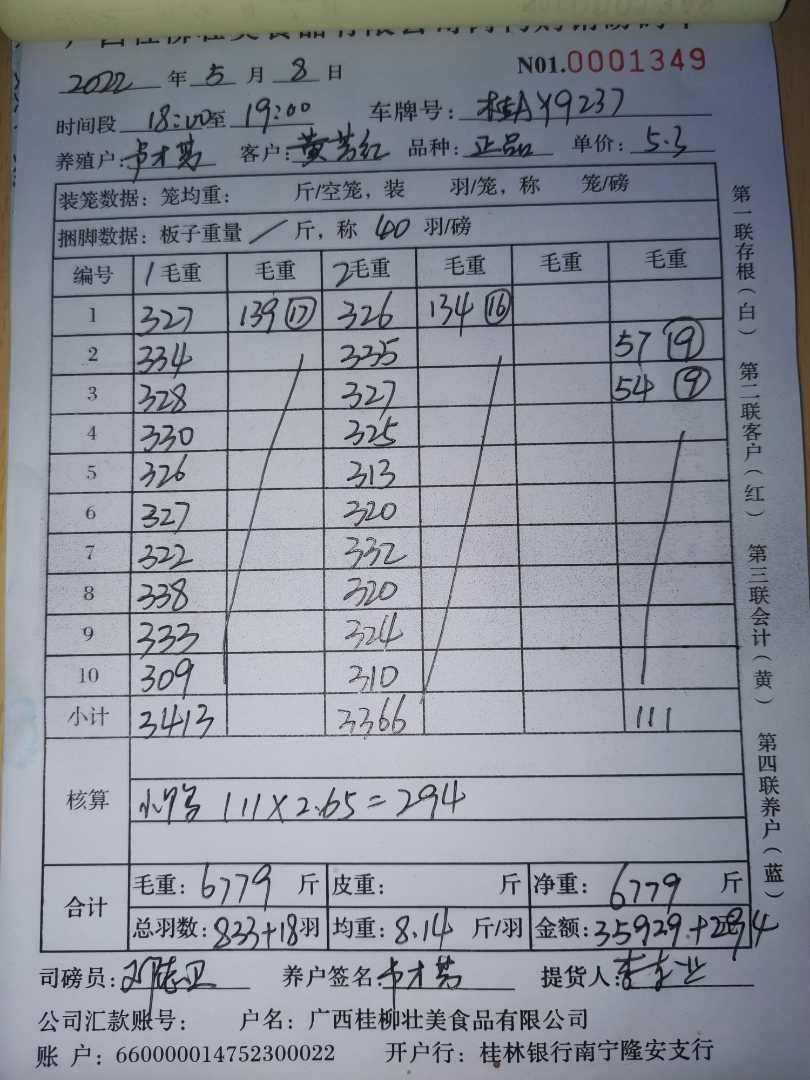 2022年5月8日 N01.0001349
时间段18:00至19:00 车牌号:桂AY9237
养殖户:卢才芬 客户:黄芳红 品种:正品 单价:5.3
装笼数据:笼均重: 斤/空笼,装 羽/笼,称 笼/磅
捆脚数据:板子重量 / 斤,称 40 羽/磅
编号 1毛重 毛重 2毛重 毛重 毛重 毛重
1 327 139⑰ 326 134⑯
2 334 335 57⑨
3 328 327 54⑨
4 330 325
5 326 313
6 327 320
7 322 332
8 338 320
9 333 324
10 309 310
小计 3413 3366 111
核算 111×2.65=294
合计 毛重:6779斤 皮重: 斤 净重:6779斤
总羽数:833+18羽 均重:8.14斤/羽 金额:35929.+294
司磅员: 养户签名:卢才芬 提货人:
公司汇款账号: 户名:广西桂柳壮美食品有限公司
账 户:660000014752300022 开户行:桂林银行南宁隆安支行
第一联存根(白) 第二联客户(红) 第三联会计(黄) 第四联养户(蓝)